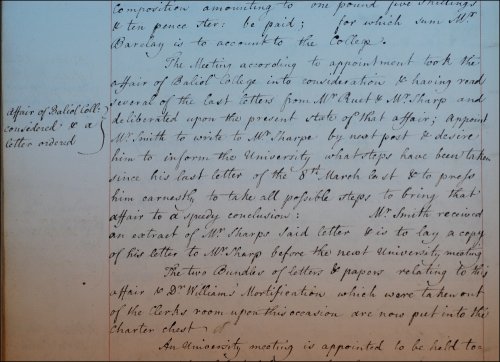 Composition amounting to one pound five shillings
& ten pence ster: be paid; for which sum Mr
Barclay is to account to the College.
The Meeting according to appointment took the
affair of Baliol College into consideration & having read
several of the last letters from Mr Ruet & Mr Sharp and
deliberated upon the present state of that affair; Appoint
Mr Smith to write to Mr Sharpe by next post & desire
him to inform the University what steps have been taken
since his last letter of the 8th March last & to press
him earnestly to take all possible steps to bring that
affair to a speedy conclusion: Mr Smith received
an extract of Mr Sharps said letter & is to lay a copy
of his letter to Mr Sharp before the next University meeting
The two Bundles of letters & papers relating to this
affair & Dr Williams' Mortification which were taken out
of the Clerks room upon this occasion are now put into the
charter chest
An University meeting is appointed to be held to-
Affair of Baliol Coll:
considered & a
letter ordered